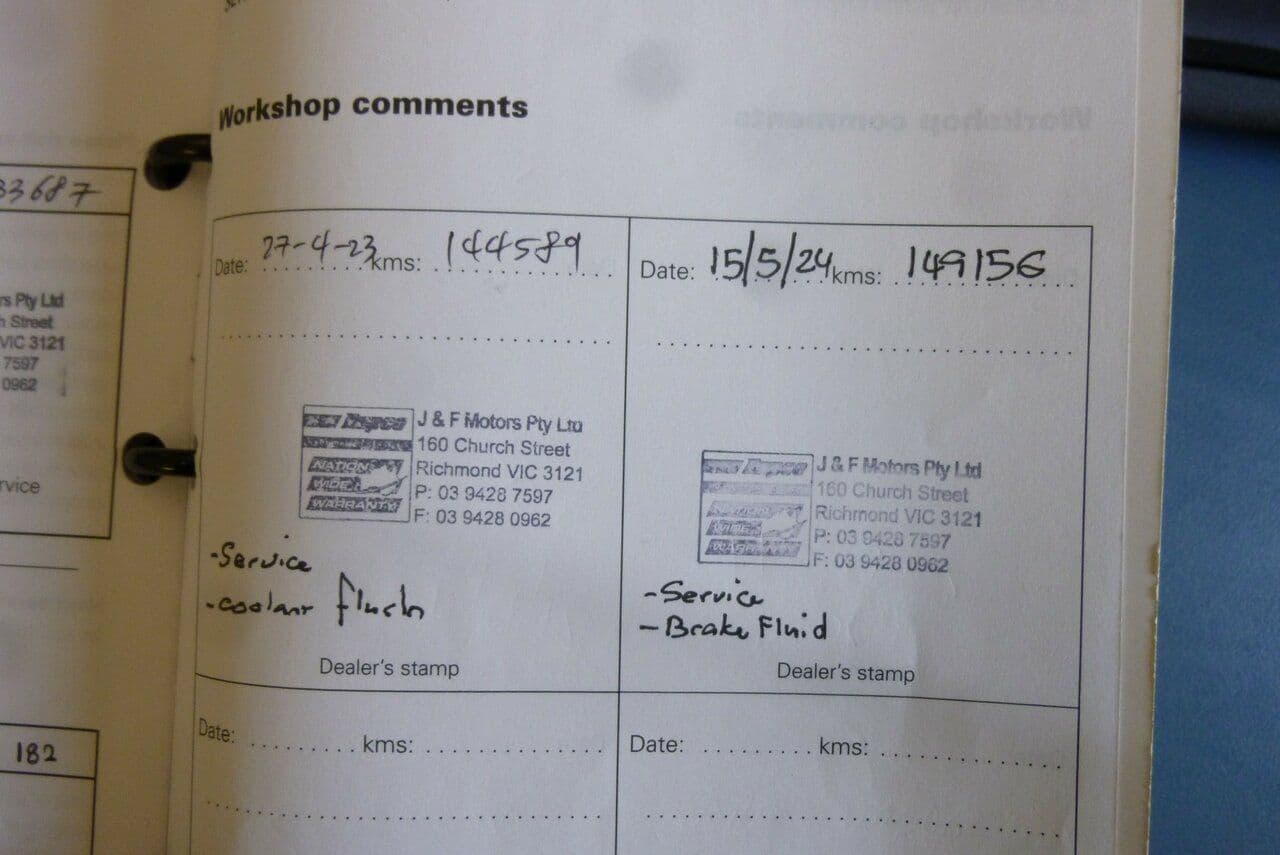 Workshop comments
33687
rs Pty Ltd
h Street
VIC 3121
7597
0962
rvice
182
Date: 27-4-23 kms: 144589
J & F Motors Pty Ltd
160 Church Street
Richmond VIC 3121
P: 03 9428 7597
F: 03 9428 0962
NATION
WIDE
WARRANTY
-Service
-coolant flush
Dealer's stamp
Date: 15/5/24 kms: 149156
J & F Motors Pty Ltd
160 Church Street
Richmond VIC 3121
P: 03 9428 7597
F: 03 9428 0962
WIDE
WARRANTY
-Service
-Brake Fluid
Dealer's stamp
Date: kms:
Date: kms: